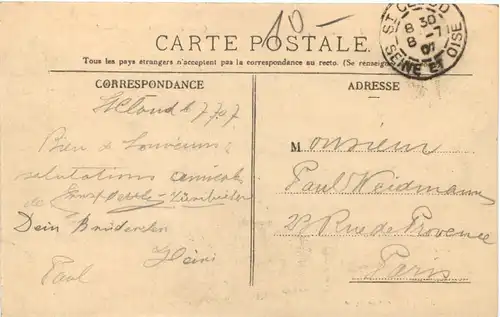 10-
ST CLOUD
8 30
8 -7
07
SEINE ET OISE
CARTE POSTALE
Tous les pays étrangers n'acceptent pas la correspondance au recto. (Se renseigner
CORRESPONDANCE
ADRESSE
St Cloud le 7 7 07
Bien de
salutations amicales
de
Dein Brüderchen
Heini
Paul
Monsieur
Paul Weidmann
Rue de Provence
Paris